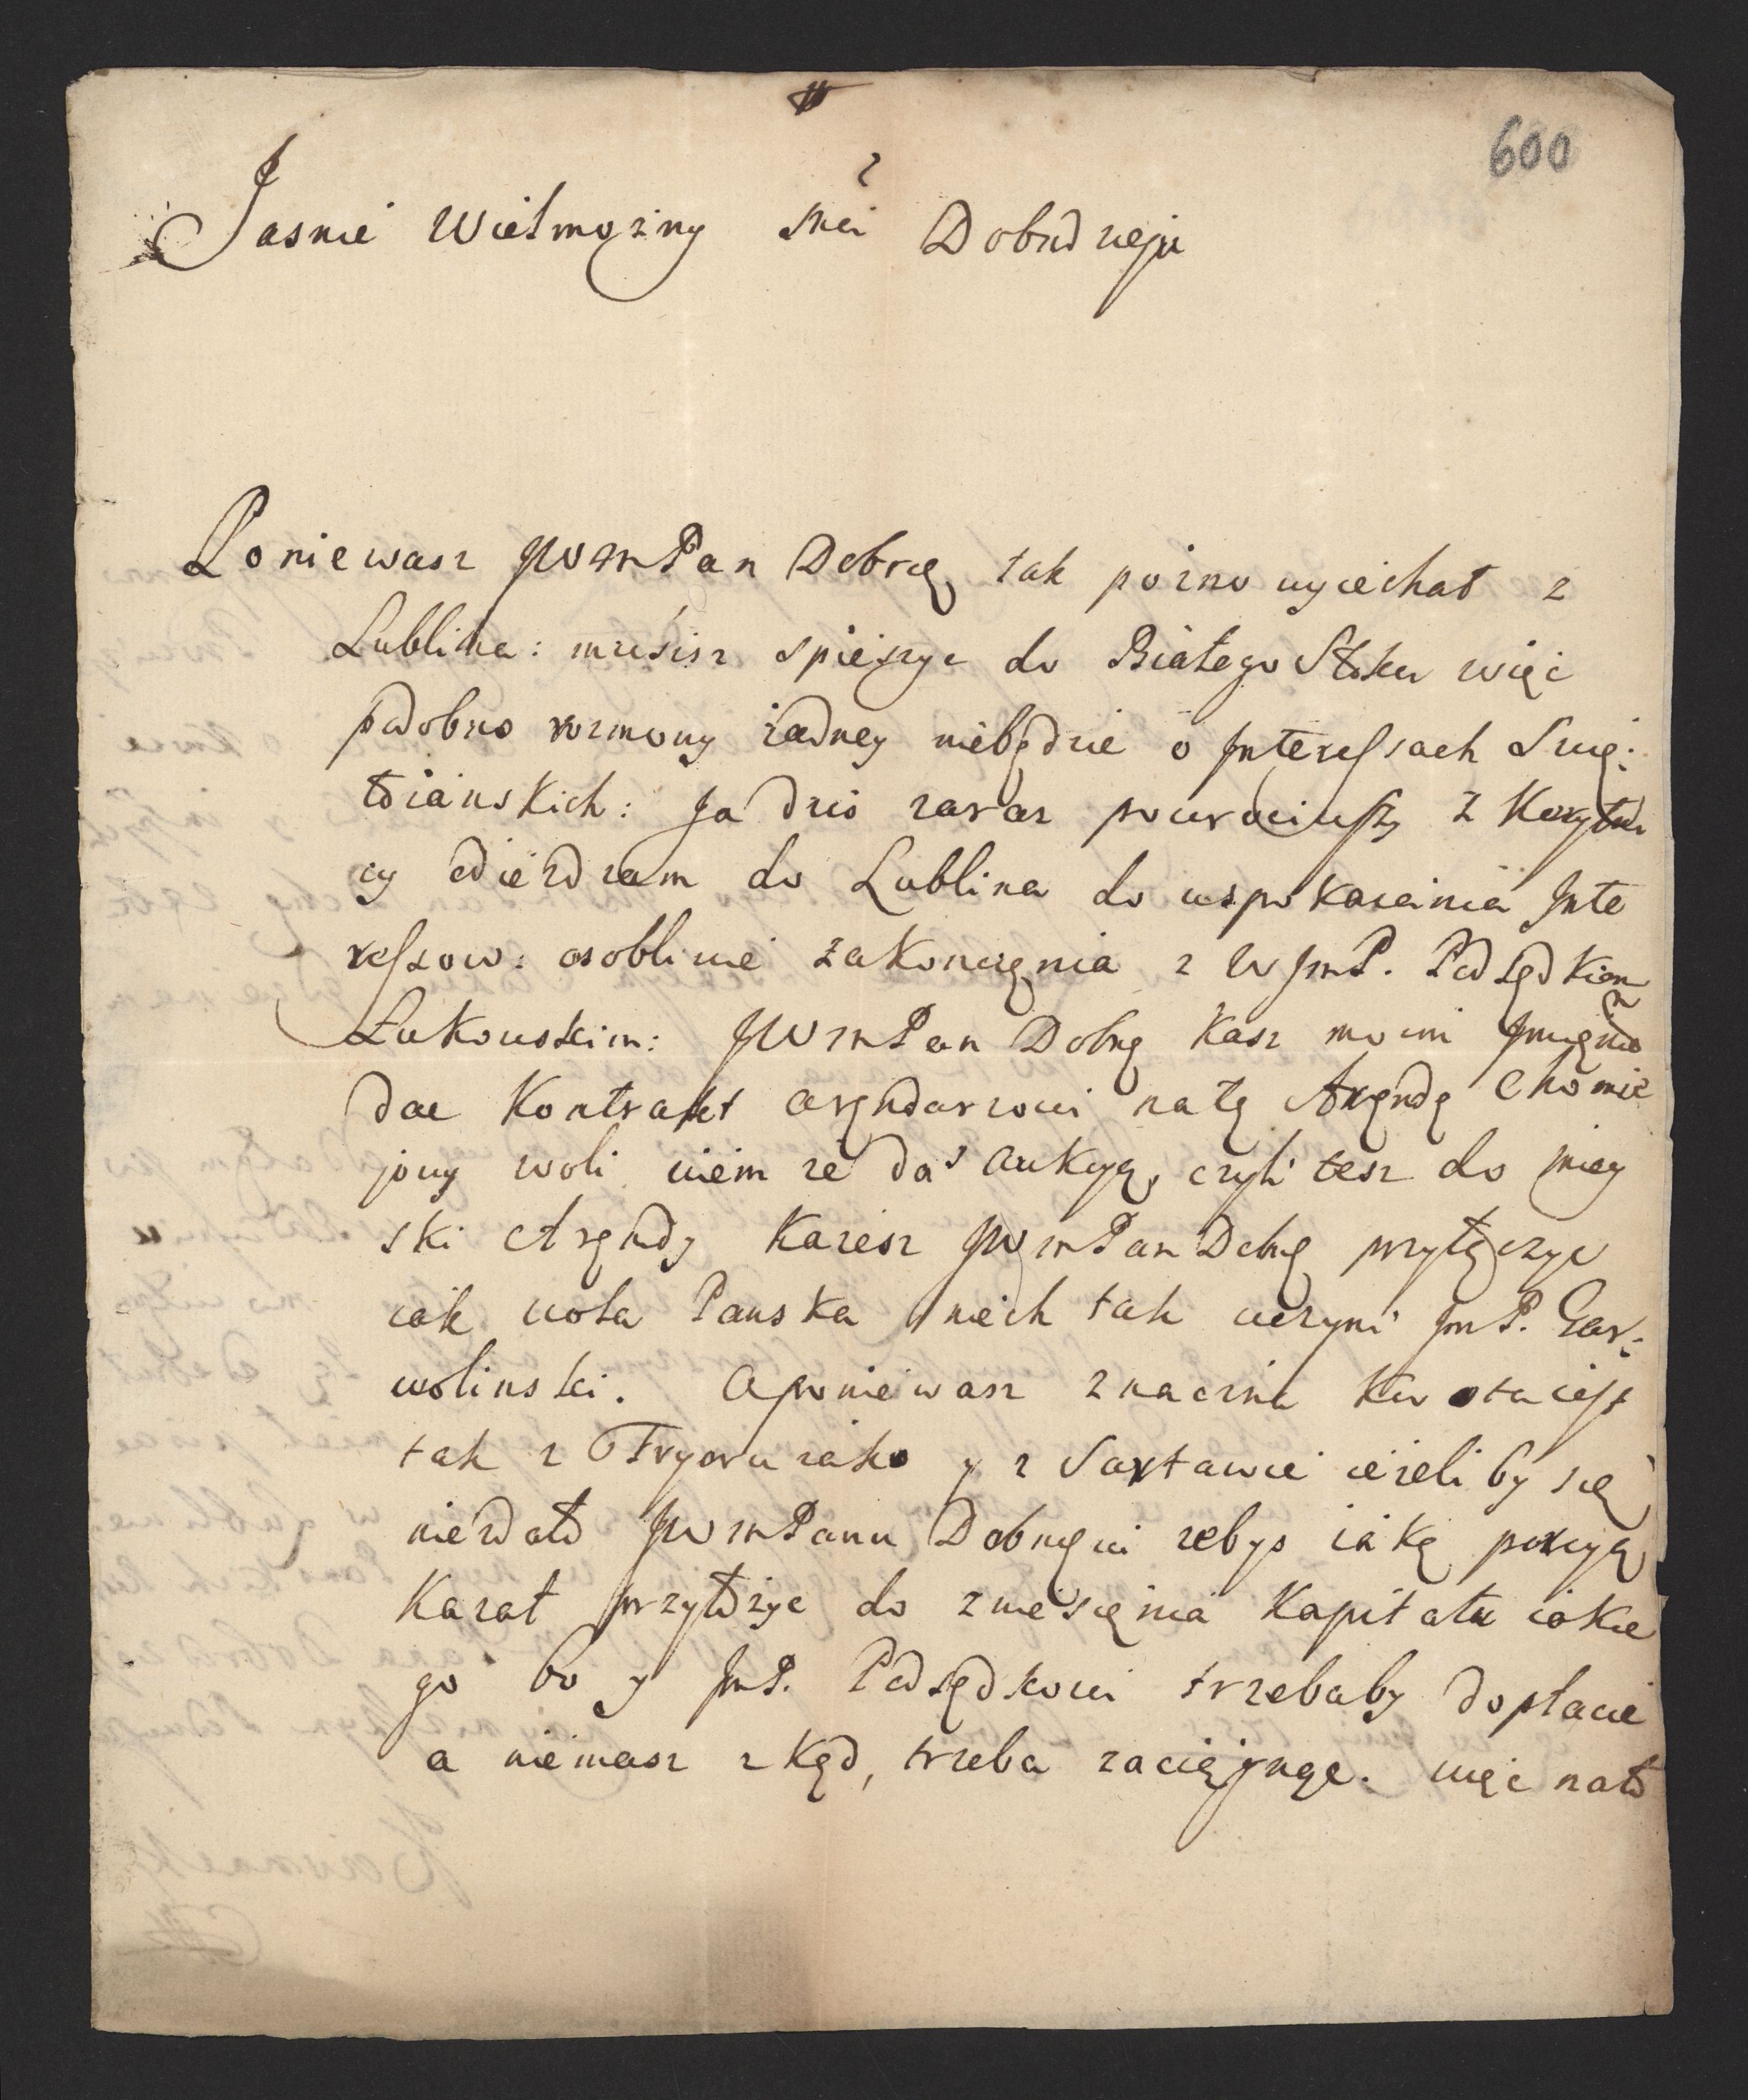 600
Jasnie Wielmozny Mci Dobrodzieju
Poniewasz JWWMPan Dobrdzię tak pozno wyiechał z
Lublina: musisz spieszyc do Białego Stoku więc
podobno rozmowy żadney niebędzie o Jnteressach
Ja dzis zaraz powrociwszy z Korytni
cy odieżdzam do Lublina do uspokaiania Jnte
ressow: osobliwie zakonczęnia z WJmP. Podsędkiem
Łukowskim: JWWMPan Dobrę kasz
dac Kontrakt arędarzowi na tę Arędę Chomię
jowy woli wiem ze da aukcyą, czyli tesz do miey
ski Arędy Kazesz JWWMPan Dobrę przyłączyc
iak wola Panska niech tak uczyni JmP. Gar:
wolinski. A poniewasz znaczna kwota iest
tak z iako y z iezeli by się
niezdało JWWMPanu Dobrzęiowi zebys iaką porcyą
Kazał przyłożyc do zniesięnia Kapitału iakie
go bo y JmP. Podsędkowi trzebaby dopłacic
a niemasz zkąd, trzeba zaciągnąc. więc nato